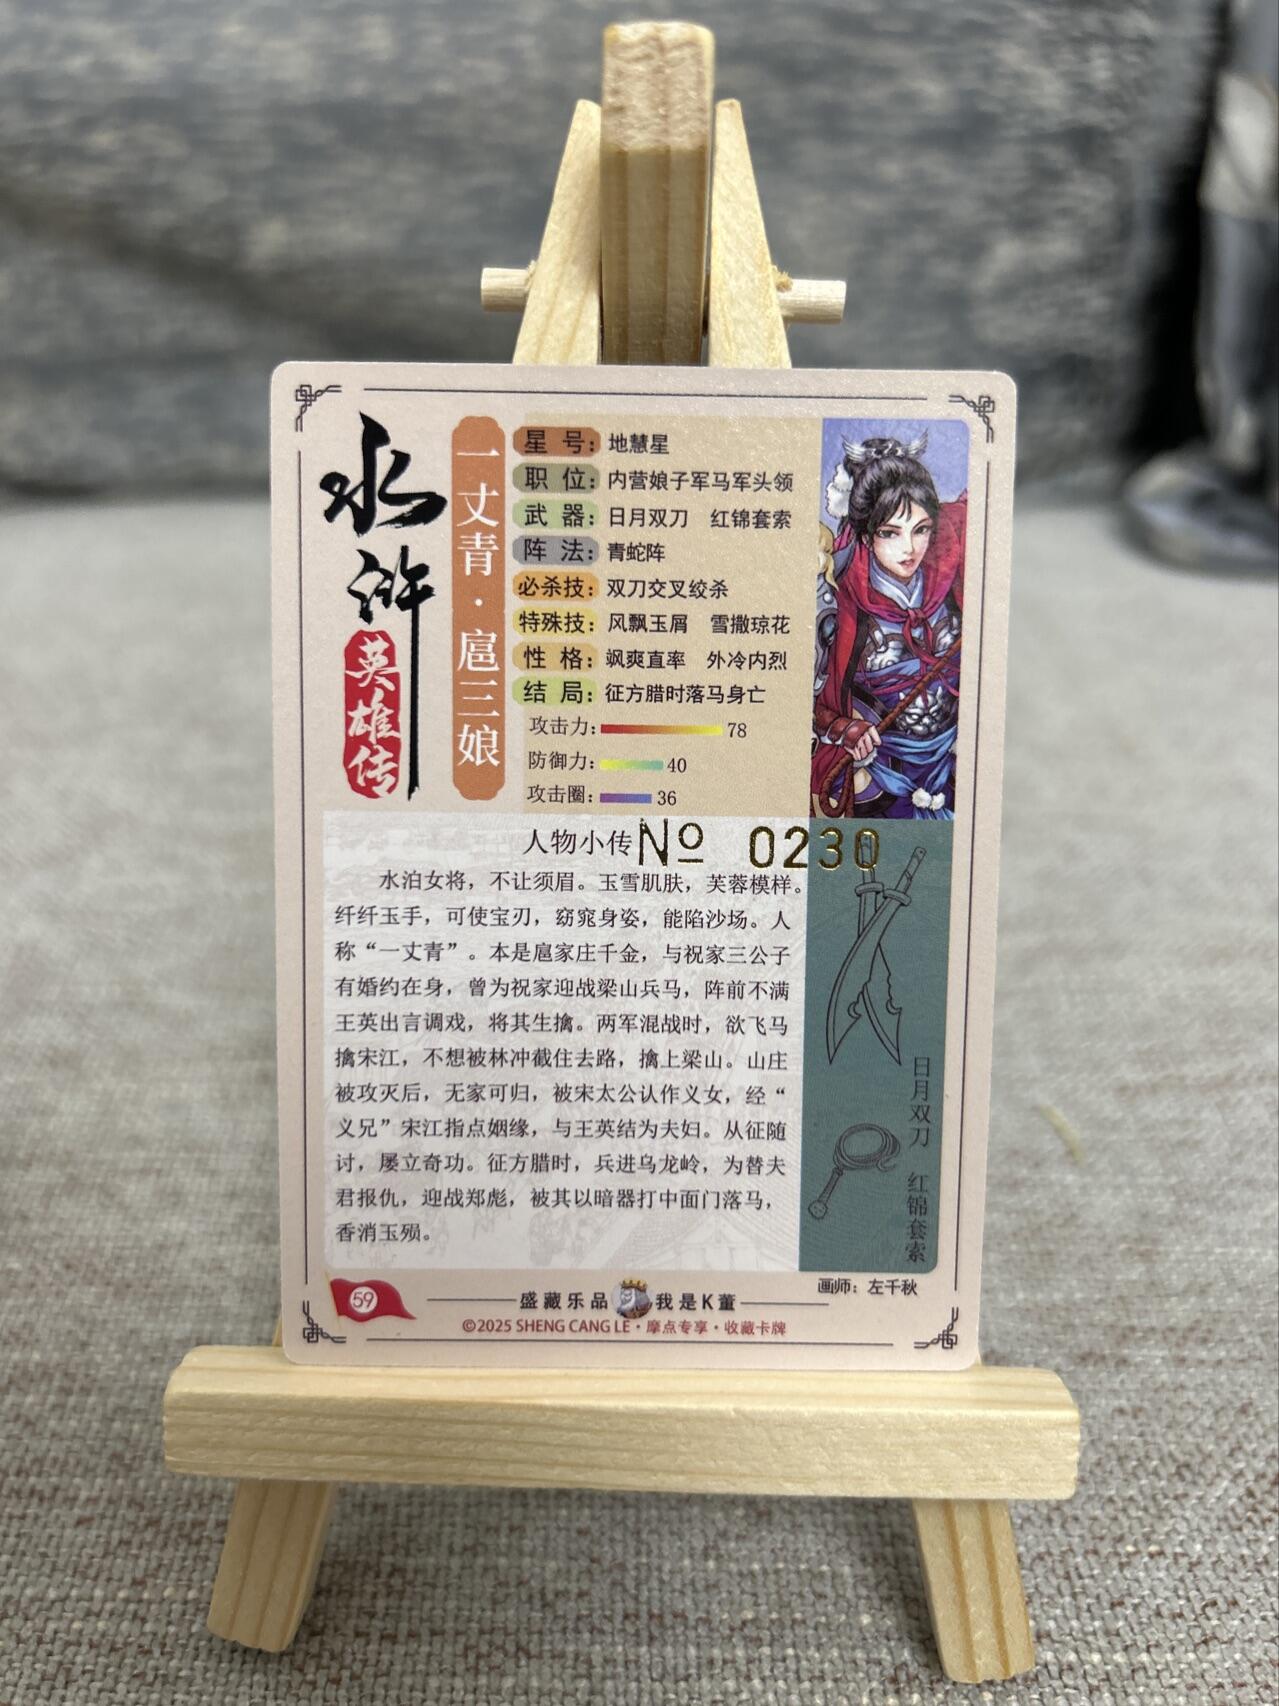 水浒
英雄传
一丈青·扈三娘
星号：地慧星
职位：内营娘子军马军头领
武器：日月双刀 红锦套索
阵法：青蛇阵
必杀技：双刀交叉绞杀
特殊技：风飘玉屑 雪撒琼花
性格：飒爽直率 外冷内烈
结局：征方腊时落马身亡
攻击力：78
防御力：40
攻击圈：36
人物小传
Nº 0230
水泊女将，不让须眉。玉雪肌肤，芙蓉模样。
纤纤玉手，可使宝刃，窈窕身姿，能陷沙场。人
称“一丈青”。本是扈家庄千金，与祝家三公子
有婚约在身，曾为祝家迎战梁山兵马，阵前不满
王英出言调戏，将其生擒。两军混战时，欲飞马
擒宋江，不想被林冲截住去路，擒上梁山。山庄
被攻灭后，无家可归，被宋太公认作义女，经“
义兄”宋江指点姻缘，与王英结为夫妇。从征随
讨，屡立奇功。征方腊时，兵进乌龙岭，为替夫
君报仇，迎战郑彪，被其以暗器打中面门落马，
香消玉殒。
日月双刀 红锦套索
画师：左千秋
59
盛藏乐品 我是K董
©2025 SHENG CANG LE·摩点专享·收藏卡牌